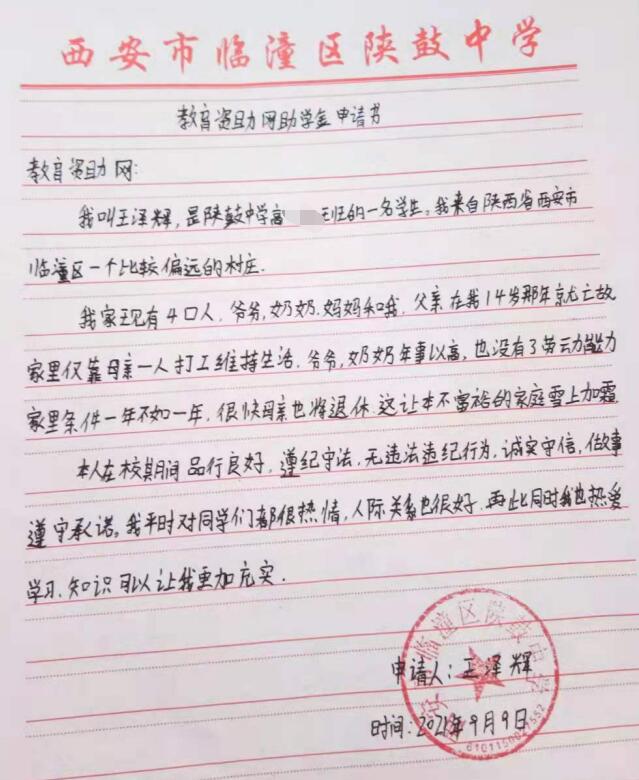 西安市临潼区陕鼓中学
教育资助网助学金申请书
教育资助网:
我叫王泽辉,是陕鼓中学高 班的一名学生。我来自陕西省西安市
临潼区一个比较偏远的村庄.
我家现有4口人.爷爷,奶奶.妈妈和我.父亲在我14岁那年就亡故
家里仅靠母亲一人打工维持生活.爷爷,奶奶年事以高,也没有了劳动能力
家里条件一年不如一年.很快母亲也将退休.这让本不富裕的家庭雪上加霜
本人在校期间品行良好,遵纪守法,无违法违纪行为,诚实守信,做事
遵守承诺。我平时对同学们都很热情,人际关系也很好.再此同时我也热爱
学习.知识可以让我更加充实.
申请人:王泽辉
时间:2021年9月9日
临潼区陕鼓中学